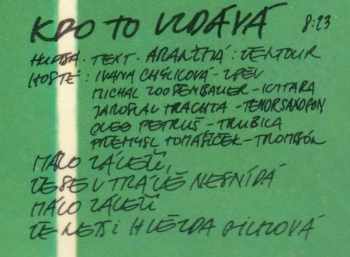 KDO TO VZDÁVÁ 8:23
HUDBA · TEXT · ARANŽMÁ: VENTOUR
HOSTÉ: IVANA CHÝLKOVÁ - ZPĚV
MICHAL - KYTARA
JAROSLAV TRACHTA - TENORSAXOFON
OLEG PETRUŠ - TRUBKA
PŘEMYSL TOMÁŠÍČEK - TROMBÓN
MÁLO ZÁLEŽÍ,
ŽE SE V TRÁVĚ NESNÍDÁ
MÁLO ZÁLEŽÍ
ŽE LETÍ HVĚZDA